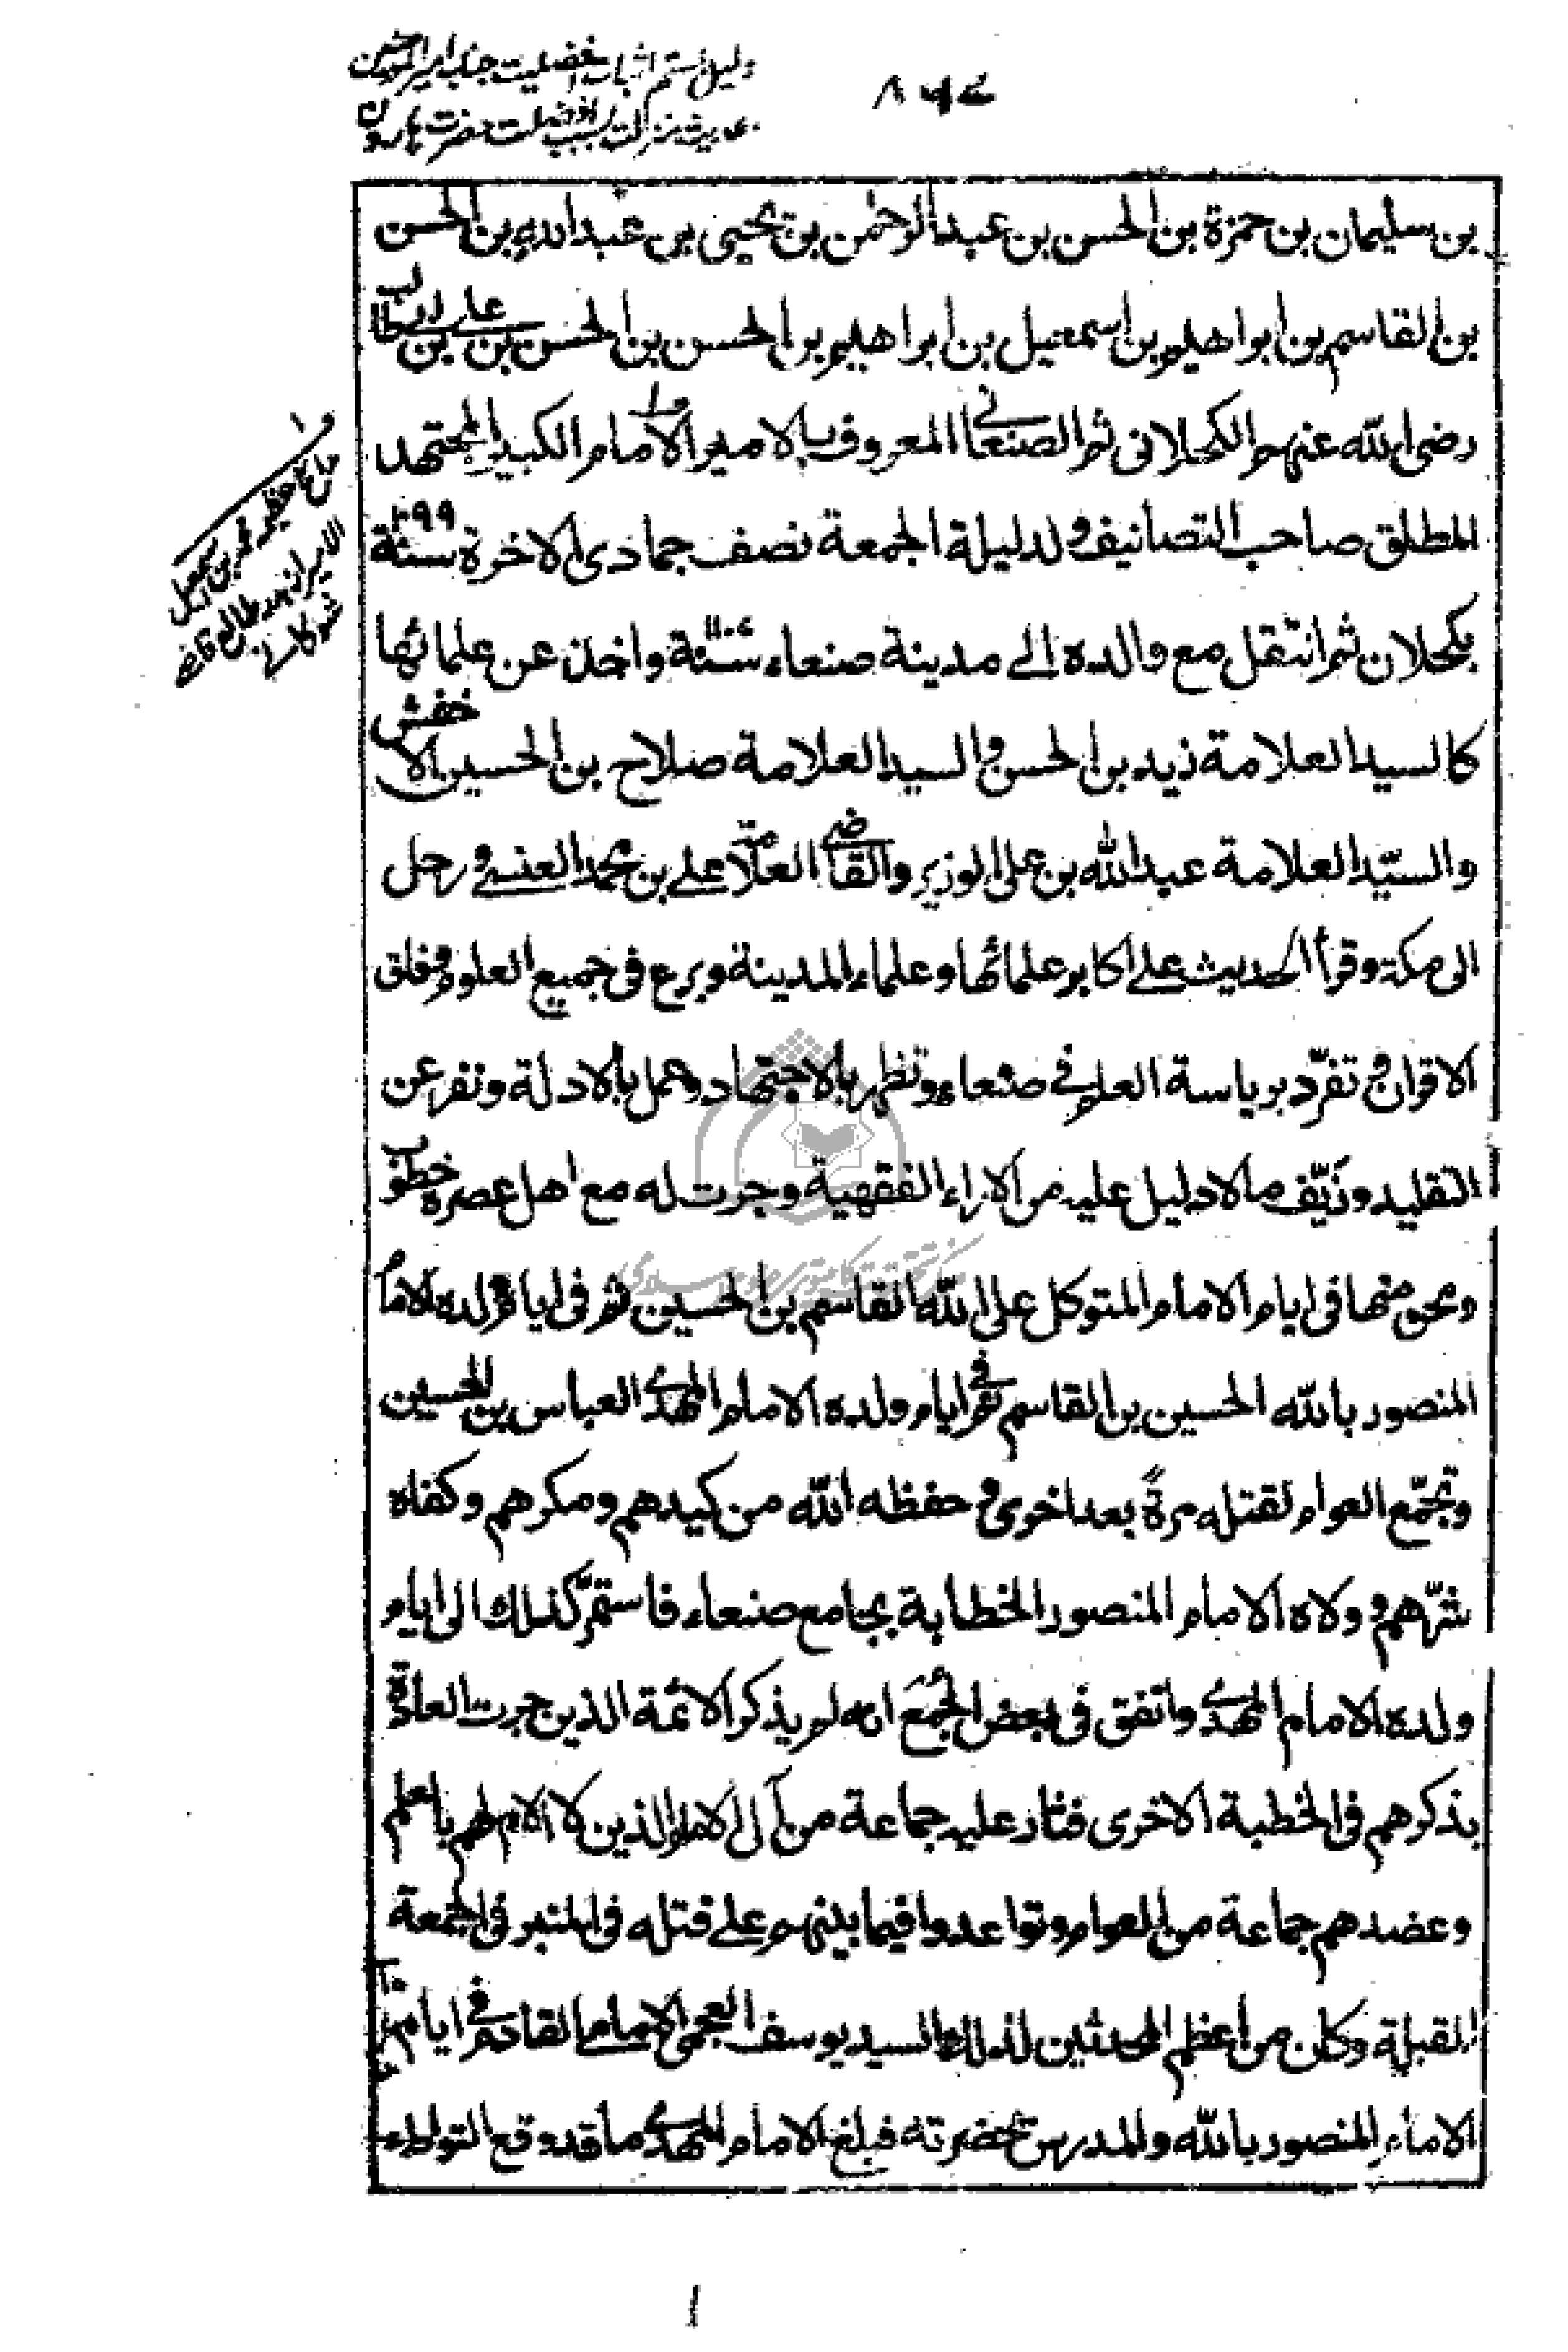 دلیل ستم اثبات افضلیت جناب امیر المومنین
بحدیث منزلت بسبب افضلیت حضرت هارون
بن سليمان بن حمزة بن الحسن بن عبد الرحمن بن يحيى بن عبد الله بن الحسن
بن القاسم بن ابراهيم بن اسمعيل بن ابراهيم بن الحسن بن الحسن بن علي بن ابي طالب
رضي الله عنهم الكحلاني ثم الصنعاني المعروف بالامير الامام الكبير المجتهد
المطلق صاحب التصانيف ولد ليلة الجمعة نصف جمادى الاخرة سنة ١٠٩٩
بكحلان ثم انتقل مع والده الى مدينة صنعاء سنة واخذ عن علمائها
كالسيد العلامة زيد بن الحسن والسيد العلامة صلاح بن الحسين الاخفش
والسيّد العلامة عبد الله بن علي الوزير والقاضي العلامة علي بن محمد العنسي ورحل
الى مكة وقرأ الحديث على اكابر علمائها وعلماء المدينة وبرع في جميع العلوم وفاق
الاقران وتفرّد برياسة العلم في صنعاء وتظهر بالاجتهاد وعمل بالادلة ونفر عن
التقليد وزيّف مالا دليل عليه من الاراء الفقهية وجرت له مع اهل عصره خطوب
ومحن منها في ايام الامام المتوكل على الله القاسم بن الحسين ثم في ايام ولده الامام
المنصور بالله الحسين بن القاسم ثم في ايام ولده الامام المهدي العباس بن الحسين
وتجمّع العوام لقتله مرةً بعد اخرى وحفظه الله من كيدهم ومكرهم وكفاه
شرّهم وولاه الامام المنصور الخطابة بجامع صنعاء فاستمرّ كذلك الى ايام
ولده الامام المهدي واتفق في بعض الجُمَع انه لم يذكر الائمة الذين جرت العادة
بذكرهم في الخطبة الاخرى فثار عليه جماعة من آل الامام الذين لا المام لهم بالعلم
وعضدهم جماعة من العوام وتواعدوا فيما بينهم على قتله في المنبر في الجمعة
المقبلة وكان من اعظم المحدثين لذلك السيد يوسف العجمي الامامي القادم في ايام
الامام المنصور بالله والمدرس بحضرته فبلغ الامام المهدي ما قد وقع التواطء